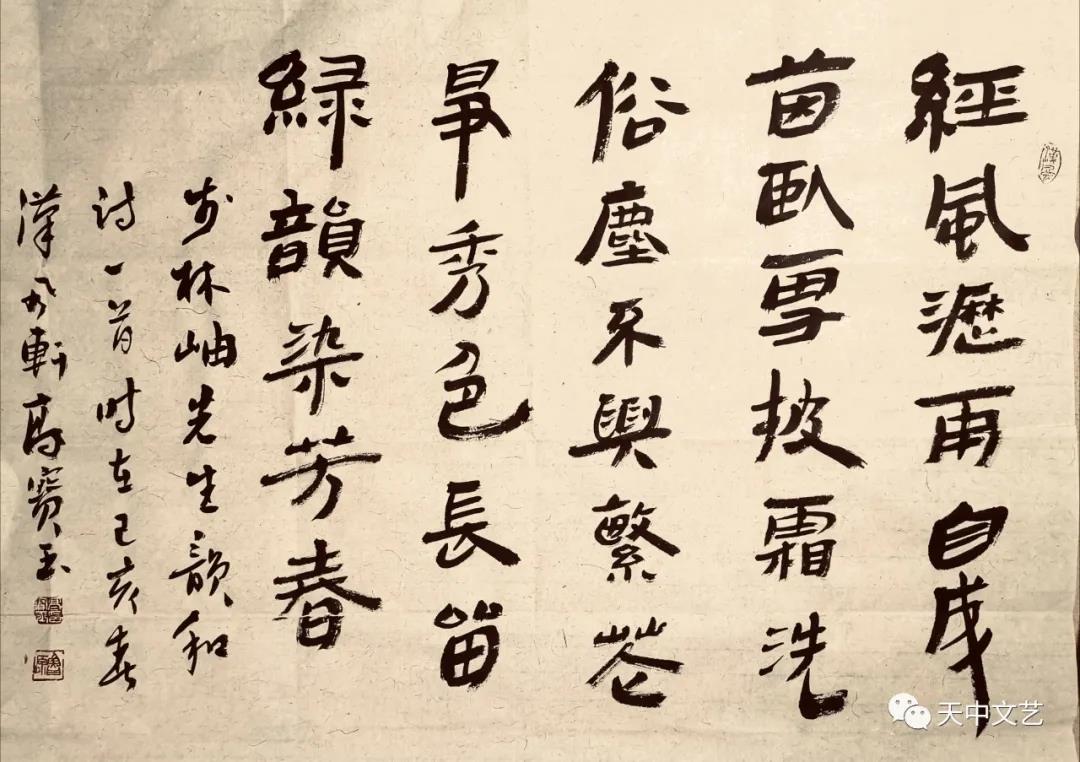 經風瀝雨自成
茵臥雪披霜洗
俗塵不與繁花
爭秀色長留
綠韻染芳春
步林岫先生韵和
诗一首时在己亥春
漢风軒高寶玉
天中文艺